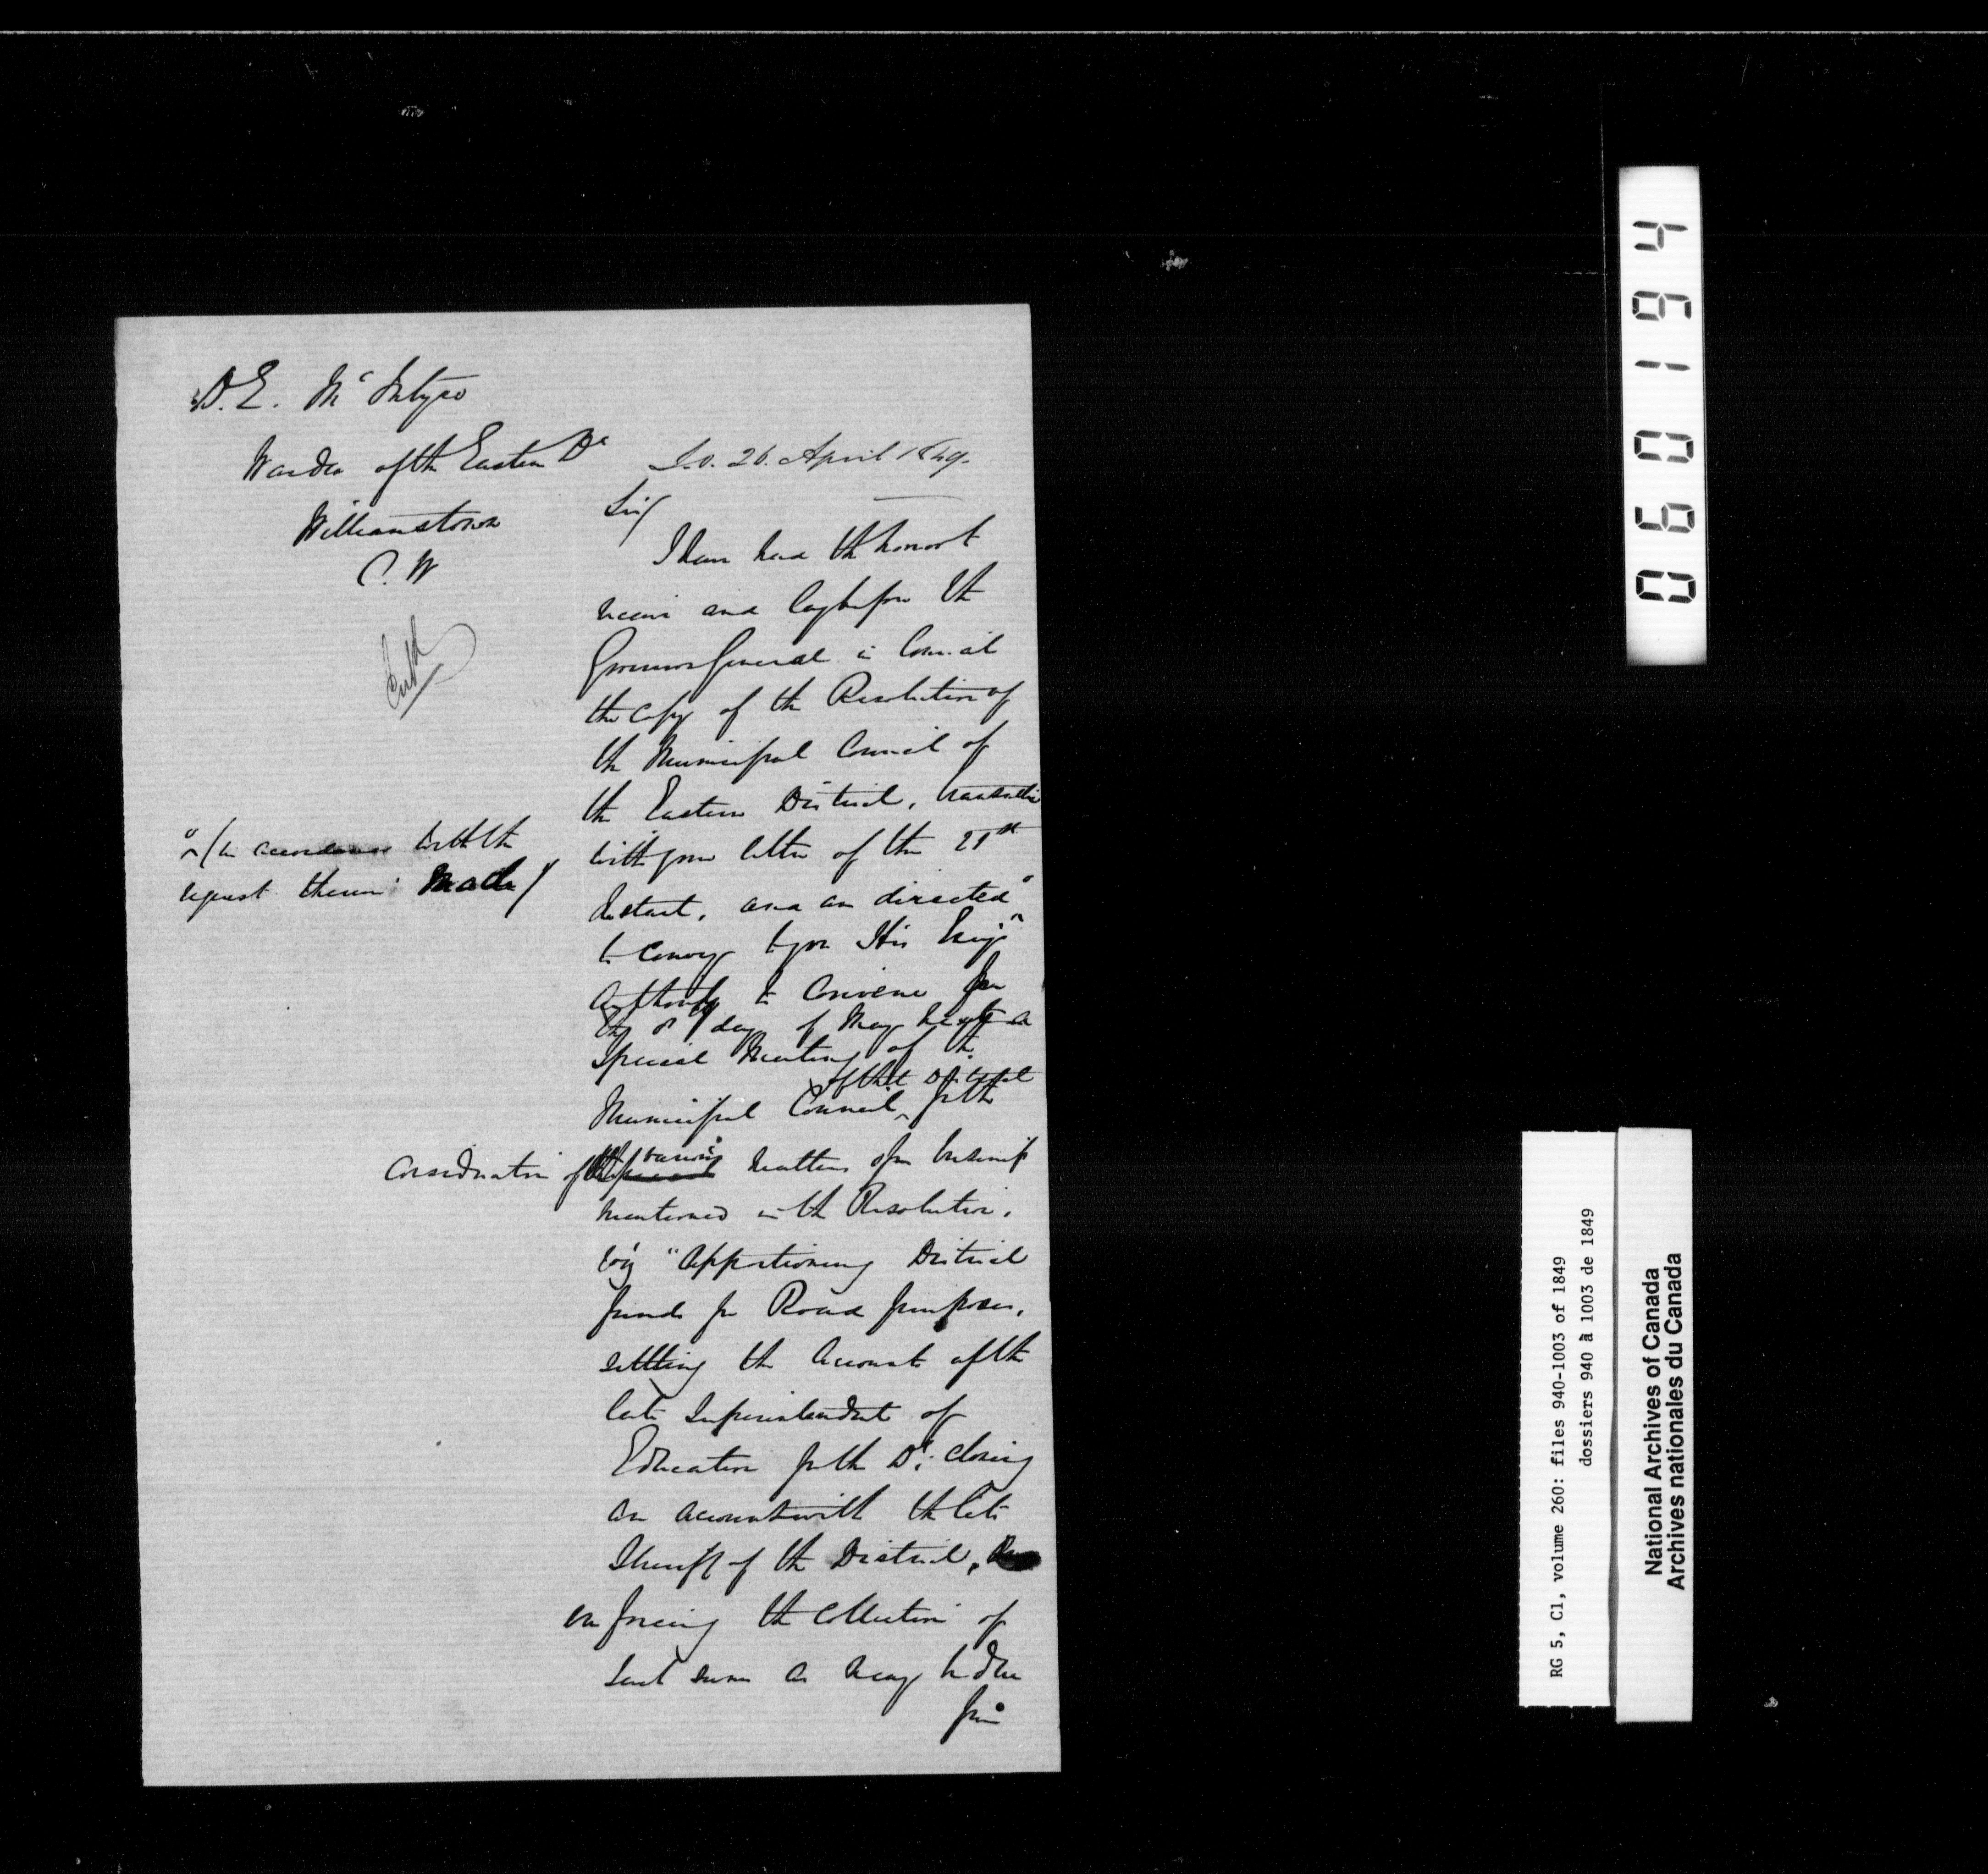 D. E. McIntyre
Warden of the Eastern Dt
Williamstown
C. W
S.O. 26. April 1849.
Sir/
I have had the honor to
receive and lay before the
Governor General in Council
the copy of the Resolution of
the Municipal Council of
the Eastern District,
with your letter of the 21st
Instant, and am directed
to convey to you His Excy's
authority to convene for
day of May next a
Special Meeting of the
of that District
Municipal Council, for the
consideration of the various matters of business
mentioned in the Resolution.
viz "apportioning District
funds for Road purposes,
settling the accounts of the
late Superintendent of
Education for the Dt. closing
an account with the late
Sheriff of the District,
enforcing the collection of
such sums as may be due
from
/in accordance with the
request therein made/
Entd
064 0190
RG 5, C1, volume 260: files 940-1003 of 1849
dossiers 940 à 1003 de 1849
National Archives of Canada
Archives nationales du Canada